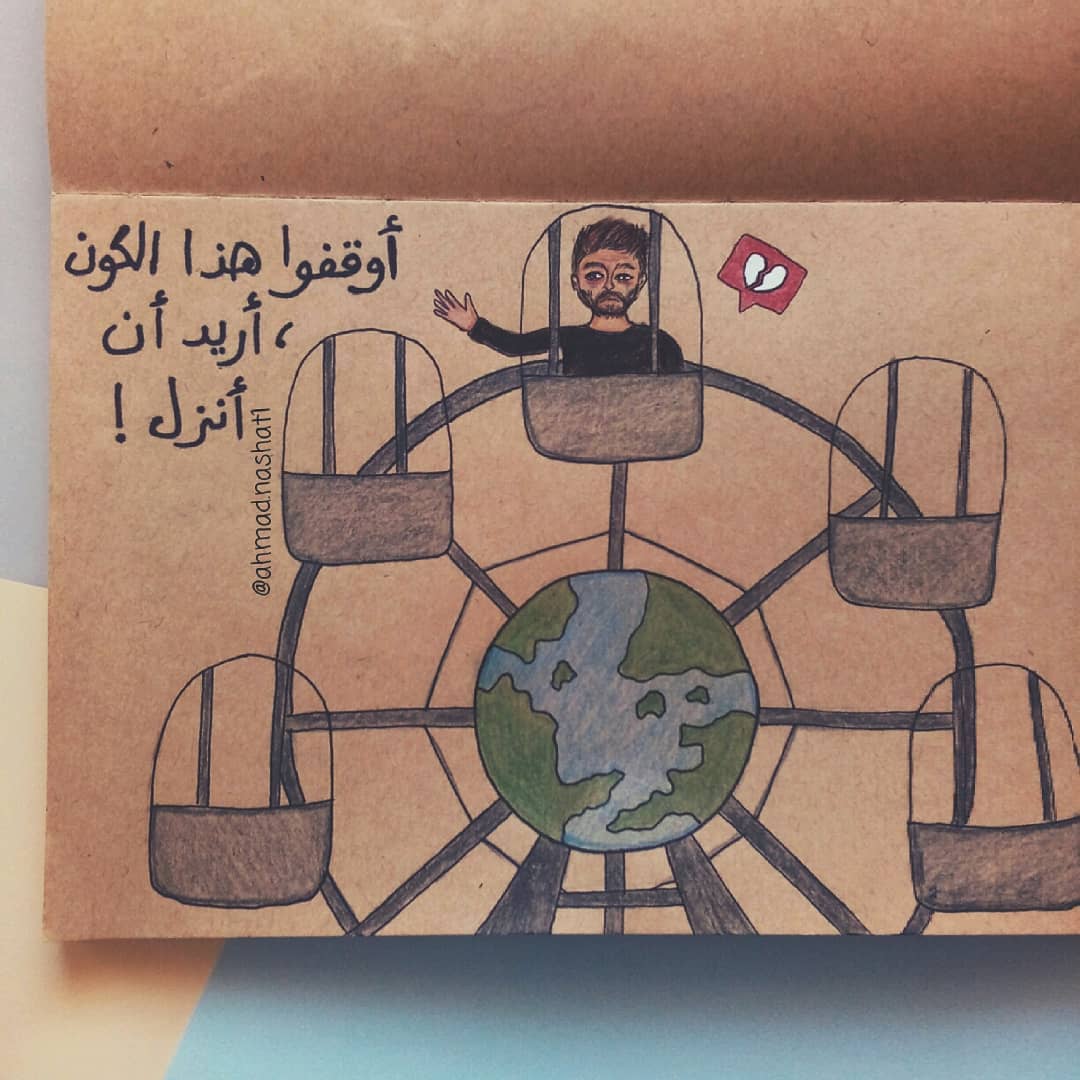 أوقفوا هذا الكون
، أريد أن
أنزل !
@ahmad.nashat1